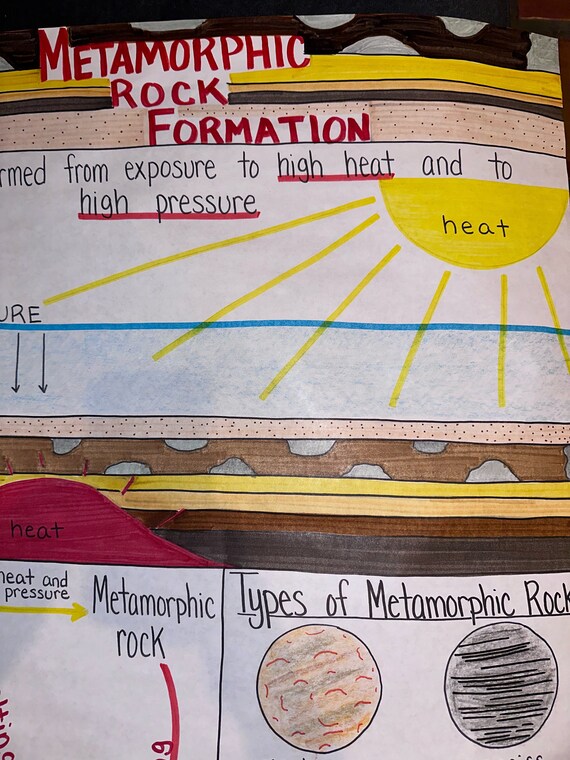 METAMORPHIC
ROCK
FORMATION
rmed from exposure to high heat and to
high pressure
heat
URE
heat
heat and
pressure
Metamorphic
rock
Types of Metamorphic Rock